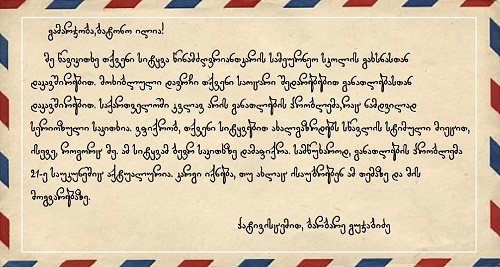 გამარჯობა,ბატონო ილია!
მე წავიკითხე თქვენი სიტყვა წინამძღვრიანთკარის სამეურნეო სკოლის გახსნასთან
დაკავშირებით. მოხიბლული დავრჩი თქვენი საოცარი შედარებებით განათლებასთან
დაკავშირებით. საქართველოში კვლავ არის განათლების პრობლემა,რაც ნამდვილად
სერიოზული საკითხია. ვფიქრობ, თქვენი სიტყვებით ახალგაზრდებს სწავლის სტიმული მიეცით,
ისევე, როგორც მე. ამ სიტყვამ ბევრ საკითხზე დამაფიქრა. სამწუხაროდ, განათლების პრობლემა
21-ე საუკუნეშიც აქტუალურია. კარგი იქნება, თუ ახლაც ისაუბრებენ ამ თემაზე და მის
მოგვარებაზე.
პატივისცემით, ბარბარე გუჯაბიძე